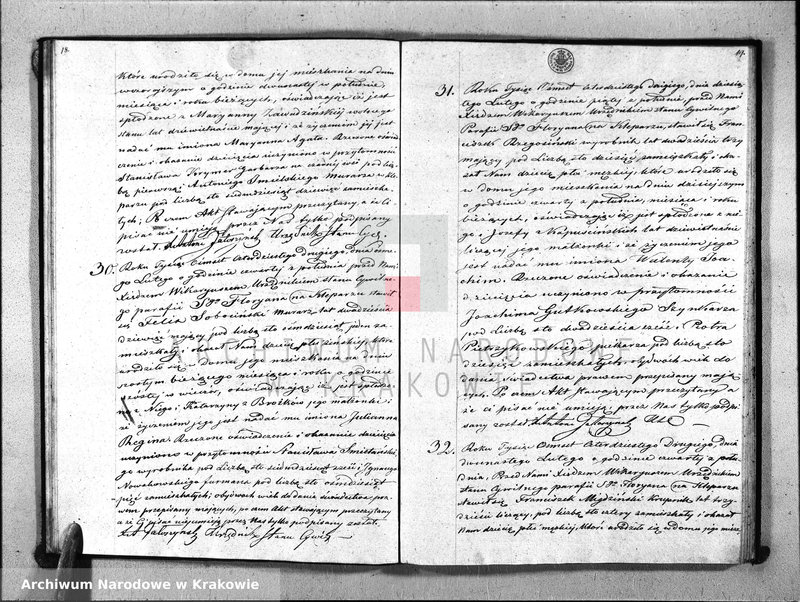 18.
które urodziło się w domu jej mieszkania na dniu
wczorajszym o godzinie dwunastej w południe,
miesiąca i roku bieżących, oświadczając iż jest
spłodzone z Maryanny Zawadzińskiej wolnego
stanu lat dziewiętnaście mającej i że życzeniem jej jest
nadać mu imiona Maryanna Agata. Rzeczone oświad
czenie i okazanie dziecięcia uczyniono w przytomności
Stanisława Krymer Garbarza na pod licz
bą pierwszą Antoniego Murarza w Kle
parzu pod liczbą sto siedmdziesiąt dziewięć zamieszka
łych; Po czem Akt Stawającym przeczytany a że Ci
pisać nie umieją przez Nas tylko podpisany
został. Urzędnik Stanu Cyw.
30. Roku Tysiąc Ośmset Czterdziestego drugiego, dnia ósme
go Lutego o godzinie czwartej z południa przed Nami
Xiędzem Wikaryuszem Urzędnikiem Stanu Cywilne
go parafii Sgo Floryana (na Kleparzu stawił
się Felix Sobociński Murarz lat dwadzieścia
dziewięć mający pod liczbą sto ośmdziesiąt jeden za
mieszkały i okazał Nam dziecię płci żeńskiej, które
urodziło się w domu jego mieszkania na dniu
szóstym bieżącego miesiąca i roku o godzinie
szóstej w wieczór, oświadczając iż jest spłodzo
ne z Niego i Katarzyny z Brożków jego małżonki i
że życzeniem jego jest nadać mu imiona Julianna
Regina Rzeczone oświadczenie i okazanie dziecięcia
uczyniono w przytomności Stanisława
go wyrobnika pod liczbą sto siedmdziesiąt sześć i Ignacego
Nowakowskiego furmana pod liczbą sto ośmdziesiąt
pięć zamieszkałych; obydwóch wieku do dania świadectwa pra
wem przepisany mających, po czem Akt stawającym przeczytany
a że Ci pisać nieumieją przez Nas tylko podpisany został.
Urzędnik Stanu Cywil
19.
31. Roku Tysiąc Ośmset Czterdziestego Drugiego, dnia dziesią
tego Lutego o godzinie piątej z południa, przed Nami
Xiędzem Wikaryuszem Urzędnikiem Stanu Cywilnego
Parafii Sgo Floryana (na Kleparzu, stawił się Fran
ciszek Rzegociński wyrobnik lat dwadzieścia trzy
mający pod liczbą sto dziesięć zamieszkały i oka
zał Nam dziecię płci męzkiej, które urodziło się
w domu jego mieszkania na dniu dzisiejszym
o godzinie czwartej z południa, miesiąca i roku
bieżących, oświadczając iż jest spłodzone z nie
go i Józefy z lat dziewiętnaście
liczącej jego małżonki i że życzeniem jego
jest nadać mu imiona Walenty Joa
chim. Rzeczone oświadczenie i okazanie
dziecięcia uczyniono w przytomności
Joachima Gutkowskiego Szynkarza
pod liczbą sto dwadzieścia sześć i Piotra
pod liczbą sto
dziesięć zamieszkałych, obydwóch wiek do
dania świadectwa prawem przepisany mają
cych. Po czem Akt Stawającym przeczytany a
że Ci pisać nie umieją, przez Nas tylko podpi
sany został.
32. Roku Tysiąc Ośmset Czterdziestego Drugiego, dnia
dwunastego Lutego o godzinie czwartej z połu
dnia, Przed Nami Xiędzem Wikaryuszem Urzędnikiem
Stanu Cywilnego parafii Sgo Floryana (na Kleparzu
stawił się Franciszek Krupnik lat trzy
dzieści liczący, pod liczbą sto cztery zamieszkały i okazał
Nam dziecię płci męzkiej, które urodziło się w domu jego miesz
ARCHIWUM NARODOWE
W KRAKOWIE
Archiwum Narodowe w Krakowie